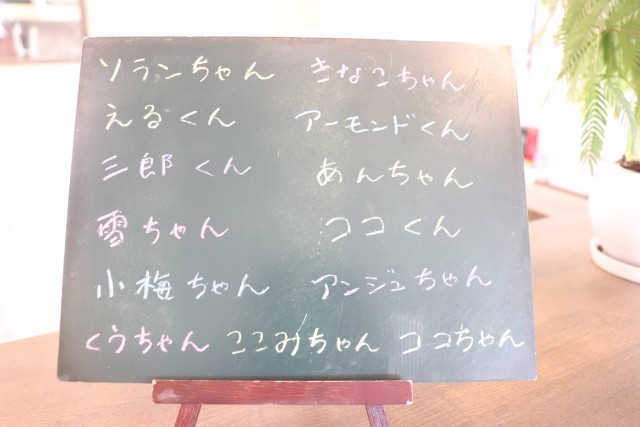 ソランちゃん きなこちゃん
えるくん アーモンドくん
三郎くん あんちゃん
雪ちゃん ココくん
小梅ちゃん アンジュちゃん
くうちゃん ここみちゃん ココちゃん